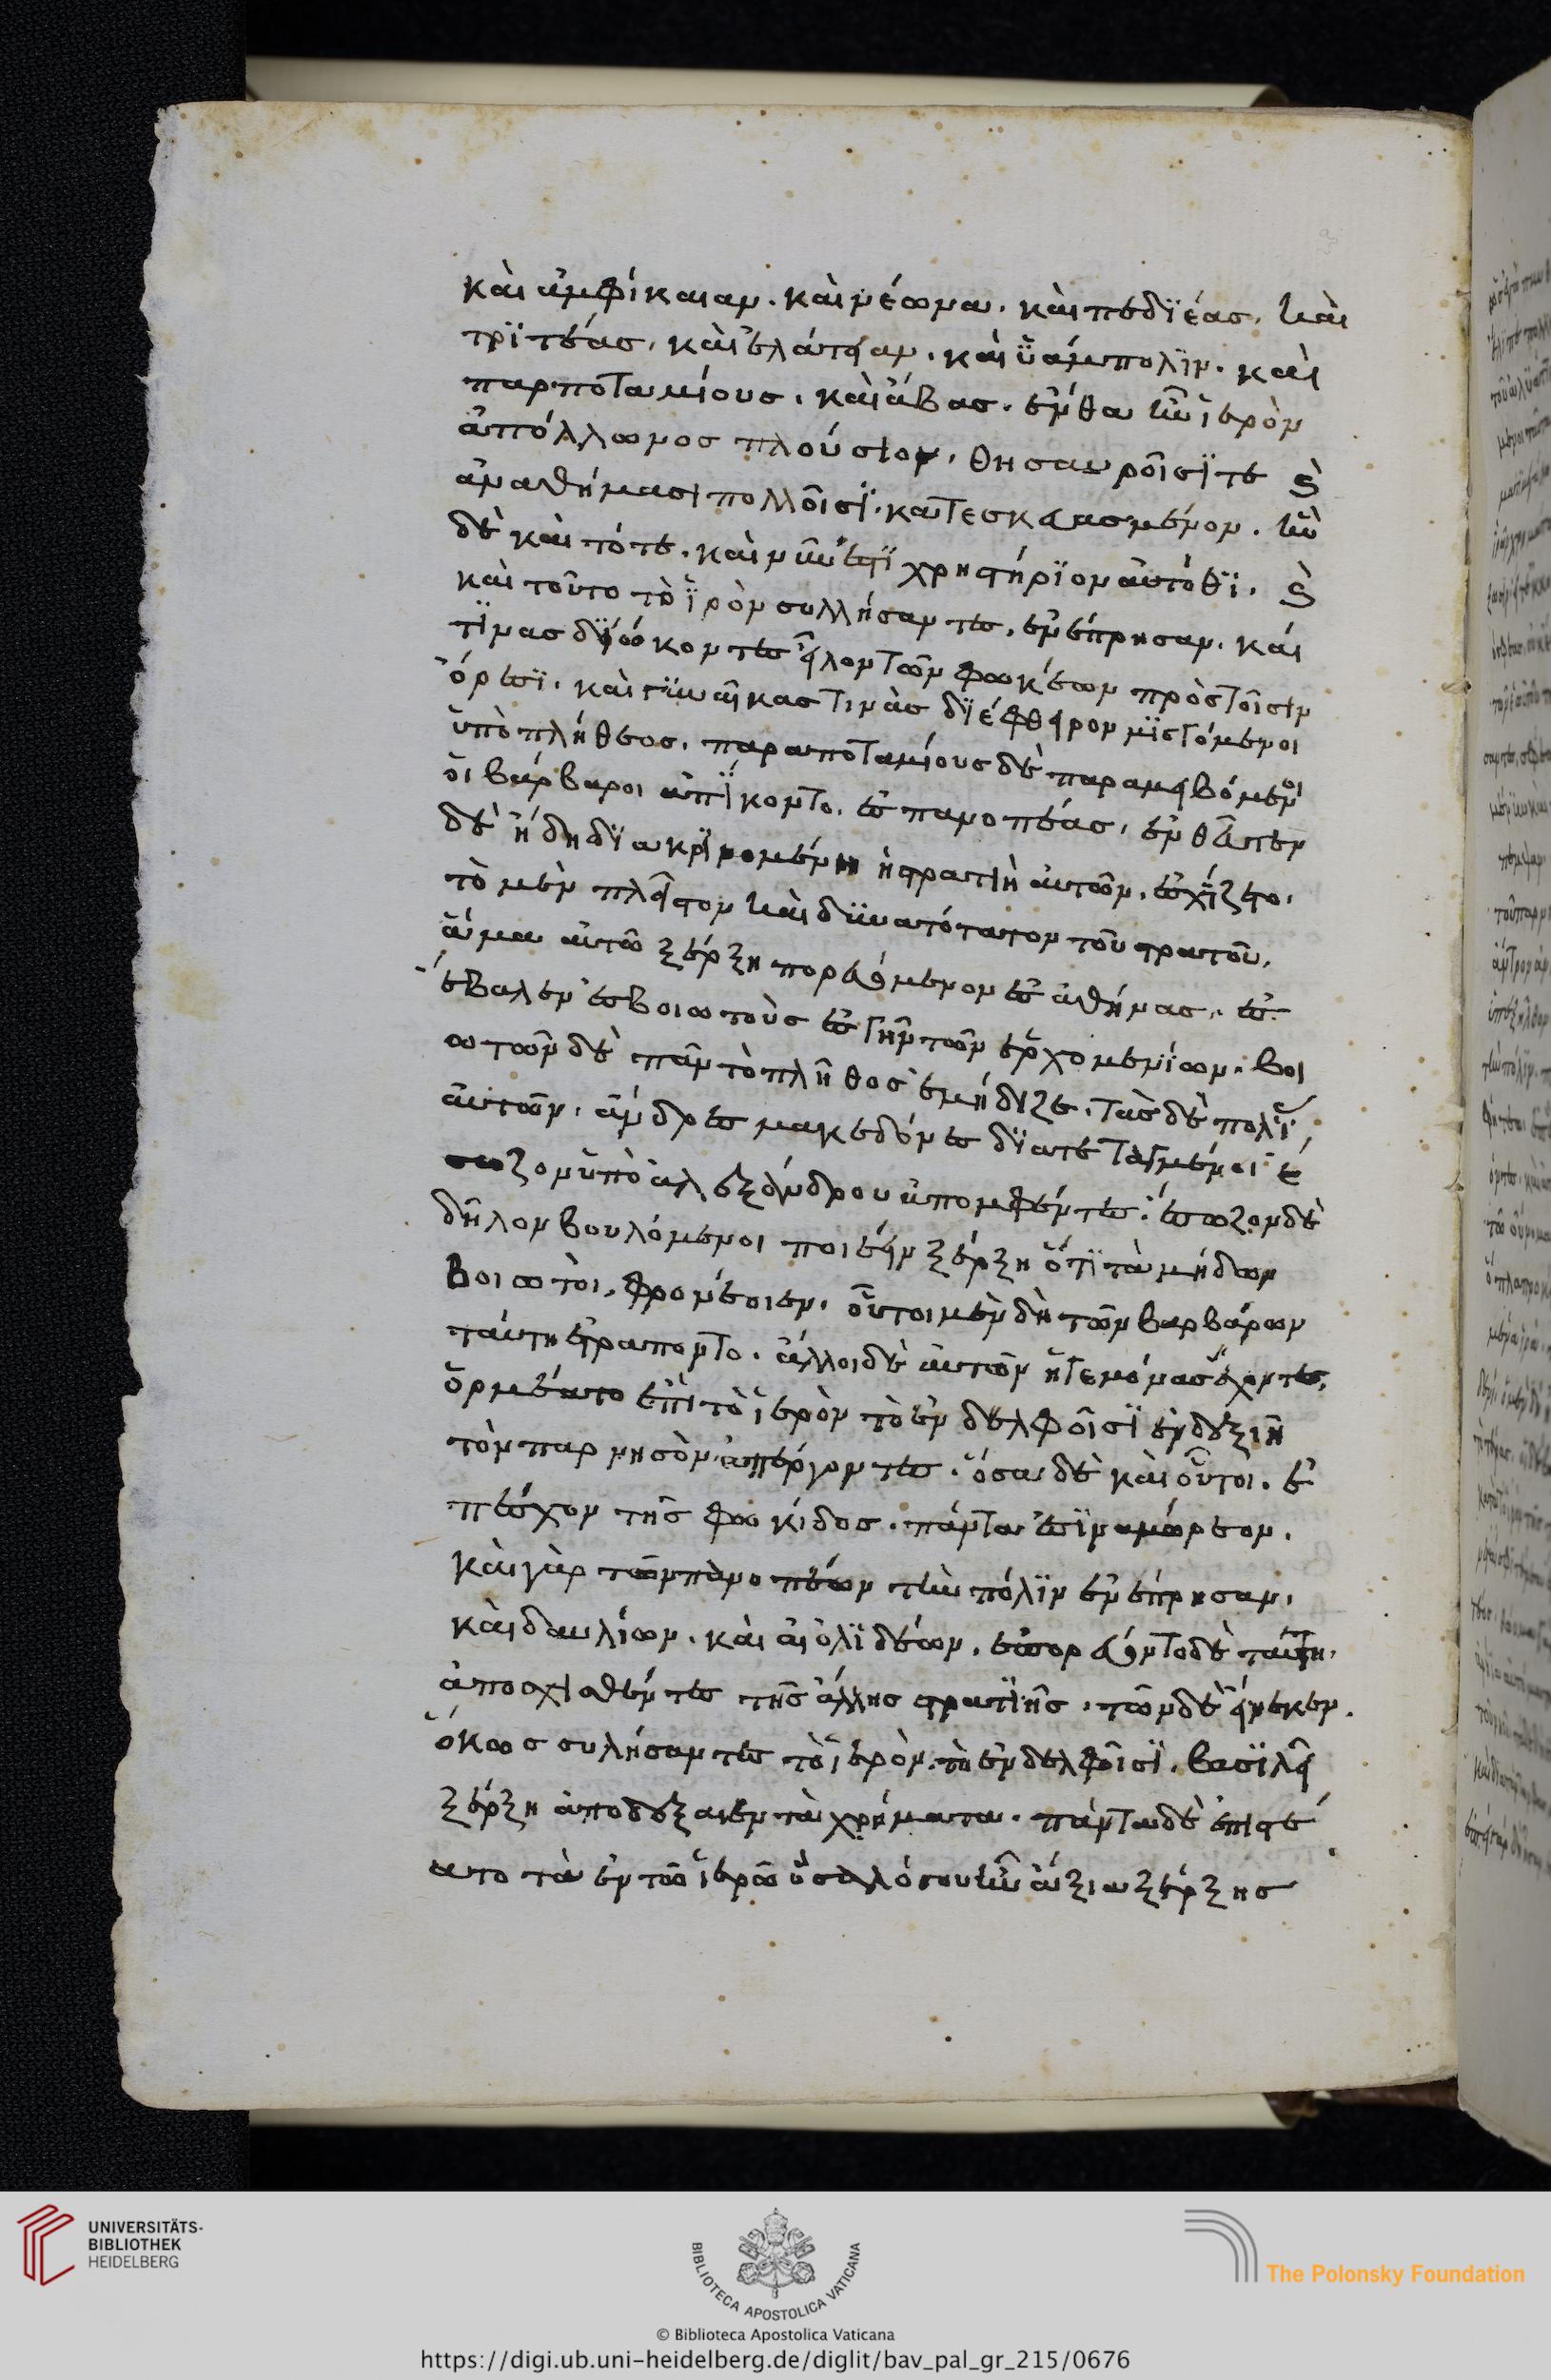 καὶ ἀμφίκαιαν. καὶ νέωνα. καὶ πεδϊέας. καὶ
τρϊτέας. καὶ ἐλάτειαν. καὶ ὑάμπολϊν. καὶ
παρποταμίους. καὶ ἄβας. ἔνθα ἦν ἱερὸν
ἀπόλλωνος πλούσιον, θησαυροῖσϊ τε καὶ
ἀναθήμασι πολλοῖσϊ. κατεσκευασμένον. ἦν
δὲ καὶ τότε. καὶ νῦν ἔστϊ χρηστήρϊον αὐτόθϊ. καὶ
καὶ τοῦτο τὸ ϊρὸν συλλήσαντες, ἐνέπρησαν. καί
τϊνας δϊώκοντες εἷλον τῶν φωκέων πρὸς τοῖσιν
ὄρεσϊ. καὶ γϋναῖκας τινὰς δϊέφθειρον μϊσγόμενοι
ὑπὸ πλήθεος. παραποταμίους δὲ παραμειβόμενοι
οἱ βάρβαροι ἀπϊκοντο. ἐς πανοπέας, ἐνθεῦτεν
δὲ ἤδη δϊακρϊνομένη ἡ στρατιὴ αὐτῶν. ἐσχϊζετο.
τὸ μὲν πλεῖστον καὶ δϋνατότατον τοῦ στρατοῦ,
ἅμα αὐτῶ ξέρξη πορευόμενον ἐς ἀθήνας. ἐσ
έβαλεν ἐς βοιωτοὺς ἐς γῆν τῶν ἐρχομενίων. βοι
ωτῶν δὲ πᾶν τὸ πλῆθος ἐμήδιζε. τὰς δὲ πολϊς
αὐτῶν. ἄνδρες μακεδόνες δϊατεταγμένοι ἔ
σωζον ὑπὸ ἀλεξάνδρου ἀποπεμφθέντες. ἔσωζον δὲ
δῆλον βουλόμενοι ποιέειν ξέρξη ὅτϊ τὰ μήδων
βοιωτοὶ, φρονέοιεν. οὗτοι μὲν δὴ τῶν βαρβάρων
ταύτη ἐτράποντο. ἄλλοι δὲ αὐτῶν ἡγεμόνας ἔχοντες,
ὁρμέατο ἐπὶ τὸ ἱερὸν τὸ ἐν δελφοῖσϊ ἐν δεξιῆ
τὸν παρνησὸν ἀπέργοντες. ὅσα δὲ καὶ οὗτοι. ἐ
πέσχον τῆς φωκίδος. πάντα ἐσϊναμώρεον.
καὶ γὰρ τῶν πανοπέων τὴν πόλϊν ἐνέπρησαν,
καὶ δαυλίων. καὶ αἰολϊδέων. ἐπορεύοντο δὲ ταύτη.
ἀποσχισθέντες τῆς ἄλλης στρατιῆς. τῶνδε εἵνεκεν.
ὅκως συλήσαντες τὸ ἱερὸν. τὸ ἐν δελφοῖσϊ. βασϊλεῖ
ξέρξη ἀποδέξαιεν τὰ χρήματα. πάντα δὲ ἐπιστέ
ατο τὰ ἐν τῶ ἱερῶ ὅσα λόγου ἦν ἄξια ξέρξης
UNIVERSITÄTS-
BIBLIOTHEK
HEIDELBERG
BIBLIOTECA APOSTOLICA VATICANA
The Polonsky Foundation
© Biblioteca Apostolica Vaticana
https://digi.ub.uni-heidelberg.de/diglit/bav_pal_gr_215/0676